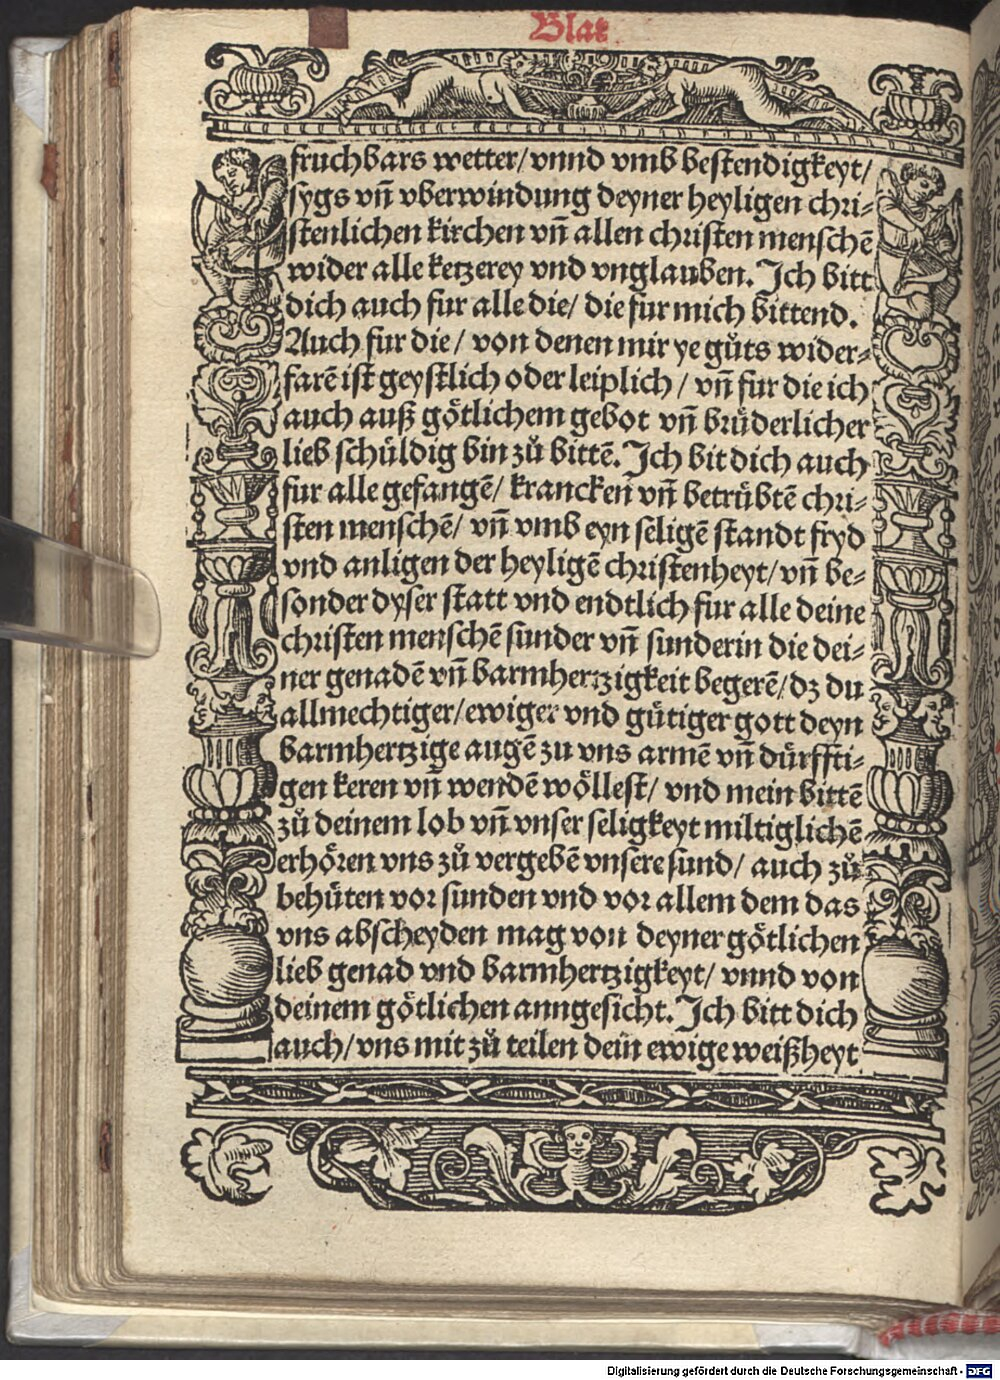 Blat
fruchbars wetter/ vnnd vmb bestendigkeyt/
sygs vn̄ vberwindung deyner heyligen chri⸗
stenlichen kirchen vn̄ allen christen menschē
wider alle ketzerey vnd vnglauben. Ich bitt
dich auch fur alle die/ die fur mich bittend.
Auch fur die/ von denen mir ye gůts wider⸗
farē ist geystlich oder leiplich/ vn̄ fur die ich
auch auß gȯtlichem gebot vn̄ brüderlicher
lieb schüldig bin zů bittē. Ich bit dich auch
fur alle gefangē/ krancken vn̄ betrübtē chri⸗
sten menschē/ vn̄ vmb eyn seligē standt fryd
vnd anligen der heyligē christenheyt/ vn̄ be⸗
sonder dyser statt vnd endtlich fur alle deine
christen menschē sunder vn̄ sunderin die dei⸗
ner genadē vn̄ barmhertzigkeit begerē/ dz du
allmechtiger/ ewiger vnd gütiger gott deyn
barmhertzige augē zu vns armē vn̄ dürffti⸗
gen keren vn̄ wendē wöllest/ vnd mein bittē
zů deinem lob vn̄ vnser seligkeyt miltiglichē
erhören vns zů vergebē vnsere sund/ auch zů
behüten vor sunden vnd vor allem dem das
vns abscheyden mag von deyner götlichen
lieb genad vnd barmhertzigkeyt/ vnnd von
deinem götlichen anngesicht. Ich bitt dich
auch/ vns mit zů teilen dein ewige weißheyt
Digitalisierung gefördert durch die Deutsche Forschungsgemeinschaft - DFG